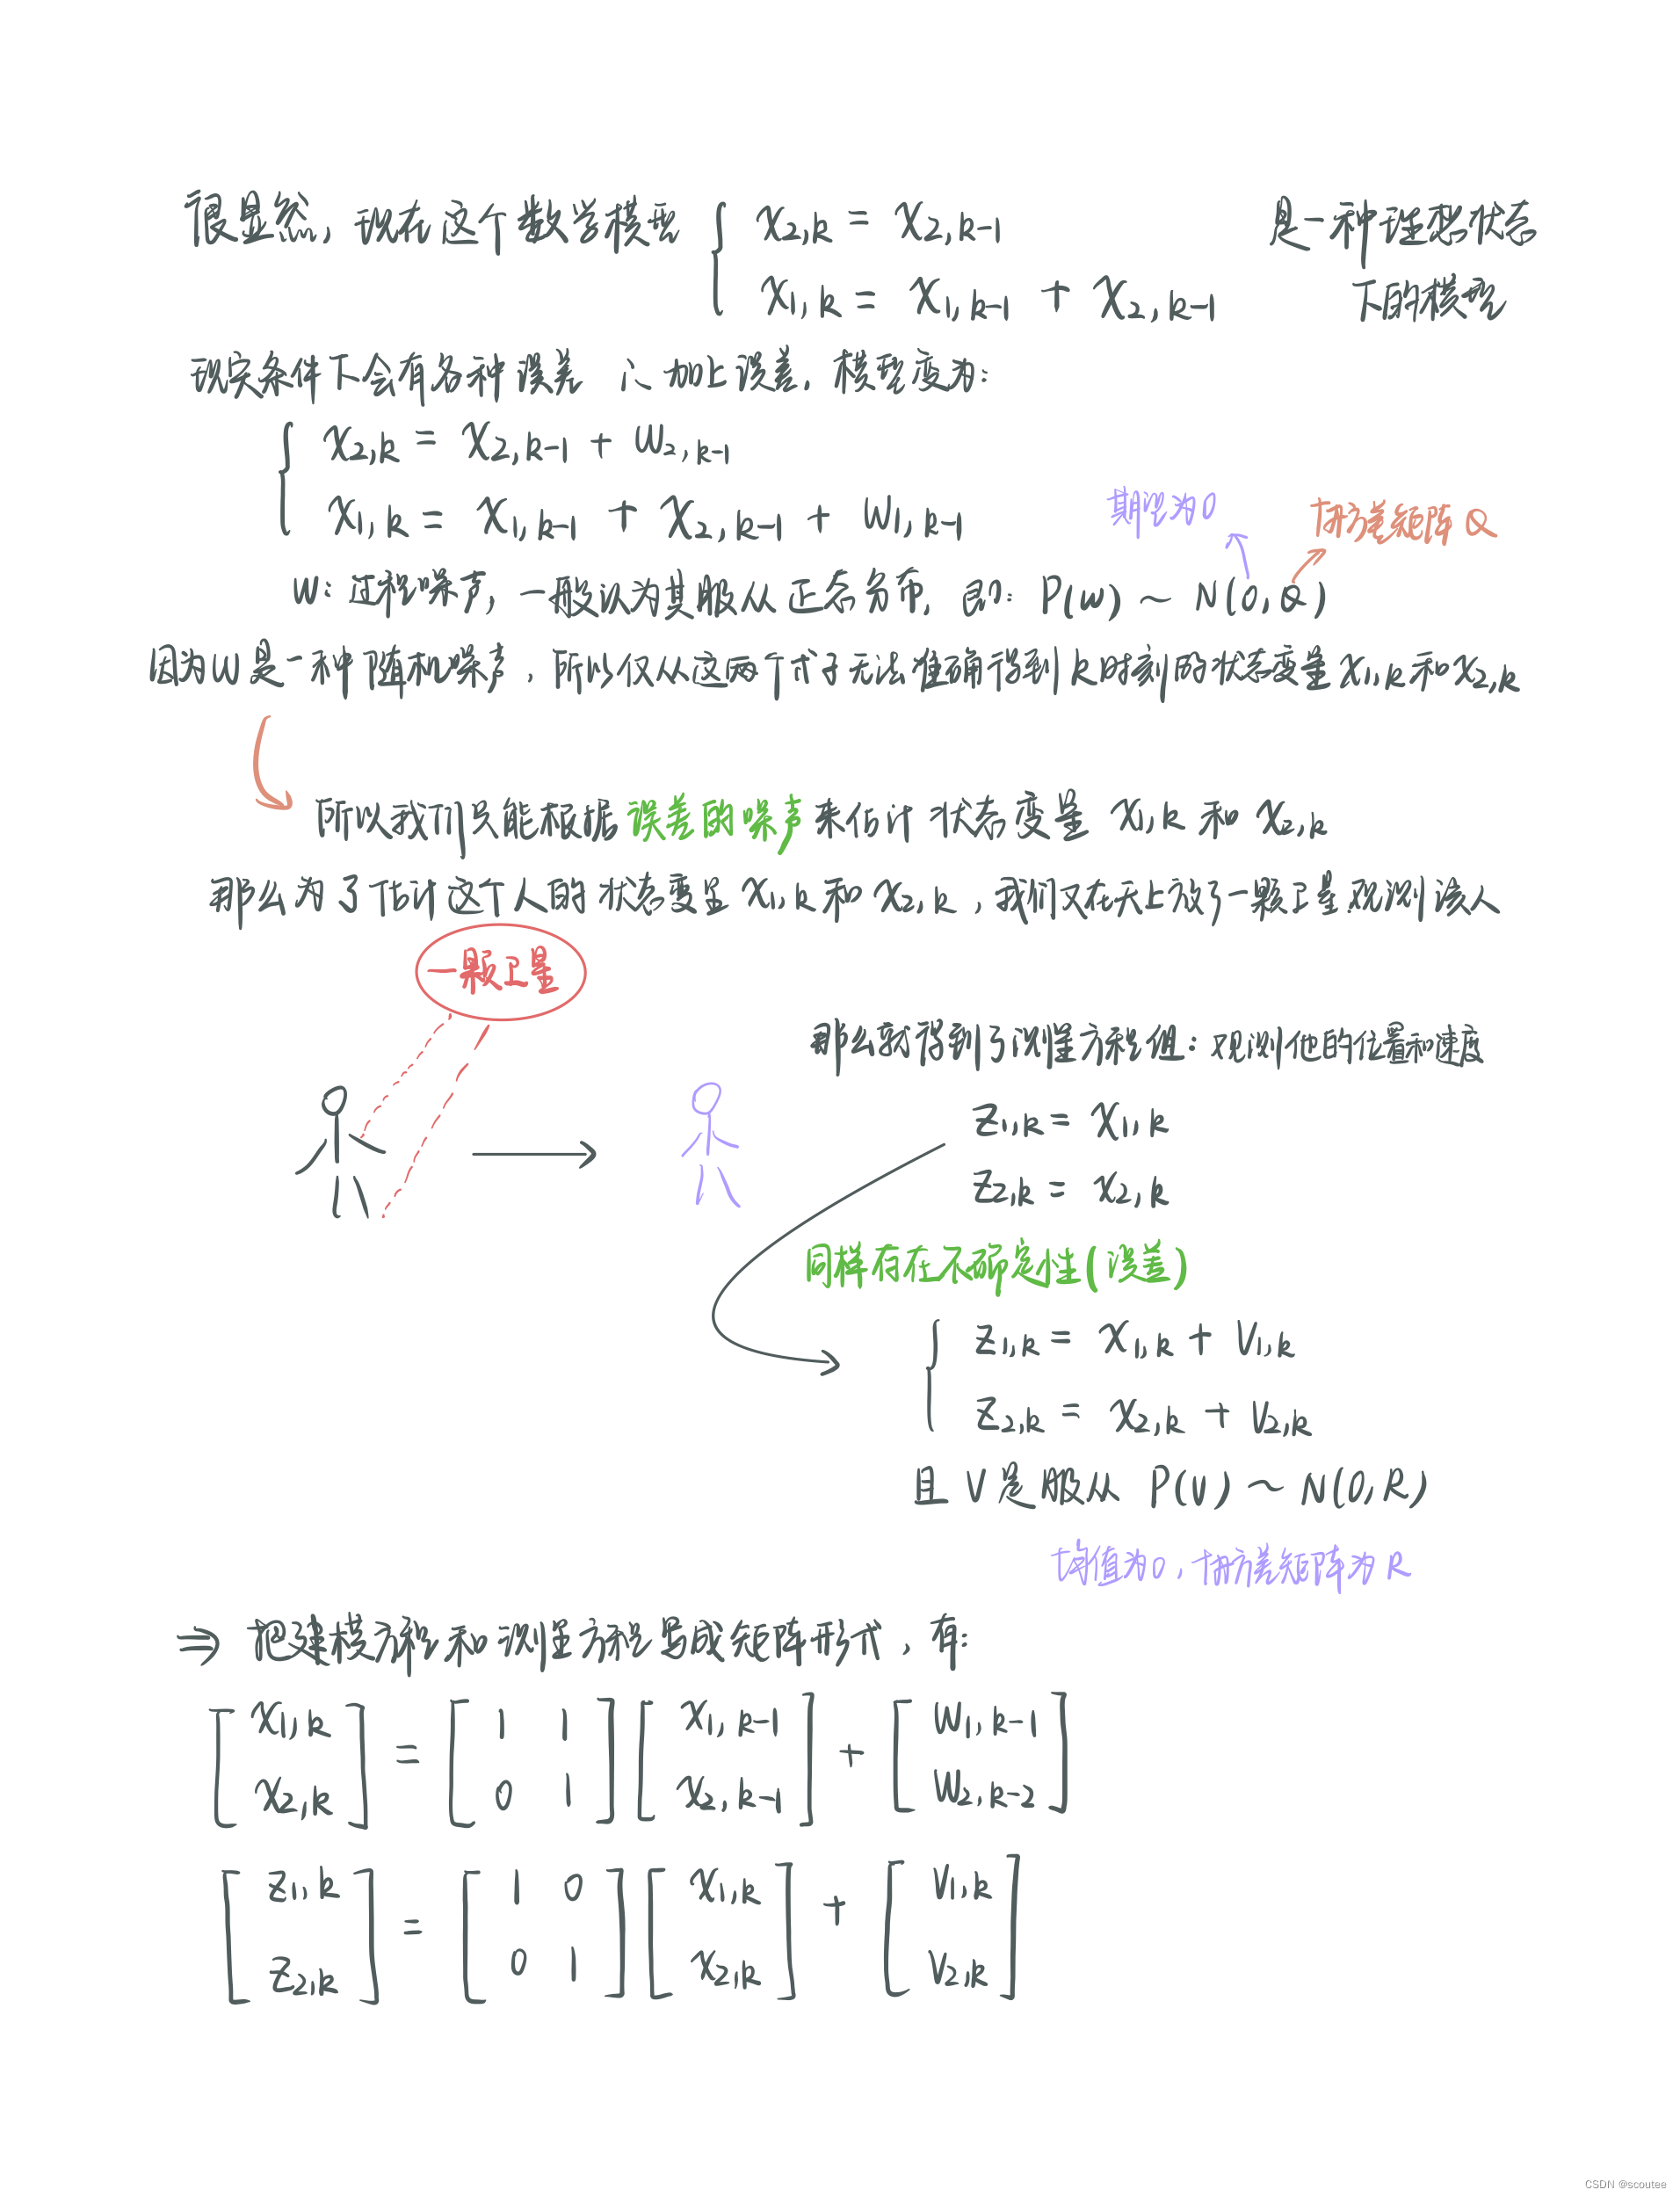 很显然，现在这个数学模型 { x2,k = x2,k-1 是一种理想状态
x1,k = x1,k-1 + x2,k-1 下的模型
现实条件下会有各种误差 ∴ 加上误差，模型变为：
{ x2,k = x2,k-1 + w2,k-1
x1,k = x1,k-1 + x2,k-1 + w1,k-1
期望为0 协方差矩阵 Q
W：过程噪声，一般认为其服从正态分布，即：P(w) ~ N(0, Q)
因为W是一种随机噪声，所以仅从这两个式子无法准确得到k时刻的状态变量x1,k和x2,k
所以我们只能根据误差的噪声来估计状态变量 x1,k 和 x2,k
那么为了估计这个人的状态变量 x1,k 和 x2,k，我们又在天上放了一颗卫星观测该人
一颗卫星
那么就得到了测量方程组：观测他的位置和速度
z1,k = x1,k
z2,k = x2,k
同样存在不确定性(误差)
{ z1,k = x1,k + v1,k
z2,k = x2,k + v2,k
且 V是服从 P(v) ~ N(0, R)
均值为0，协方差矩阵为 R
⇒ 把建模方程和测量方程写成矩阵形式，有：
[x1,k] = [1 1] [x1,k-1] + [w1,k-1]
[x2,k] [0 1] [x2,k-1] [w2,k-2]
[z1,k] = [1 0] [x1,k] + [v1,k]
[z2,k] [0 1] [x2,k] [v2,k]
CSDN @scoutee